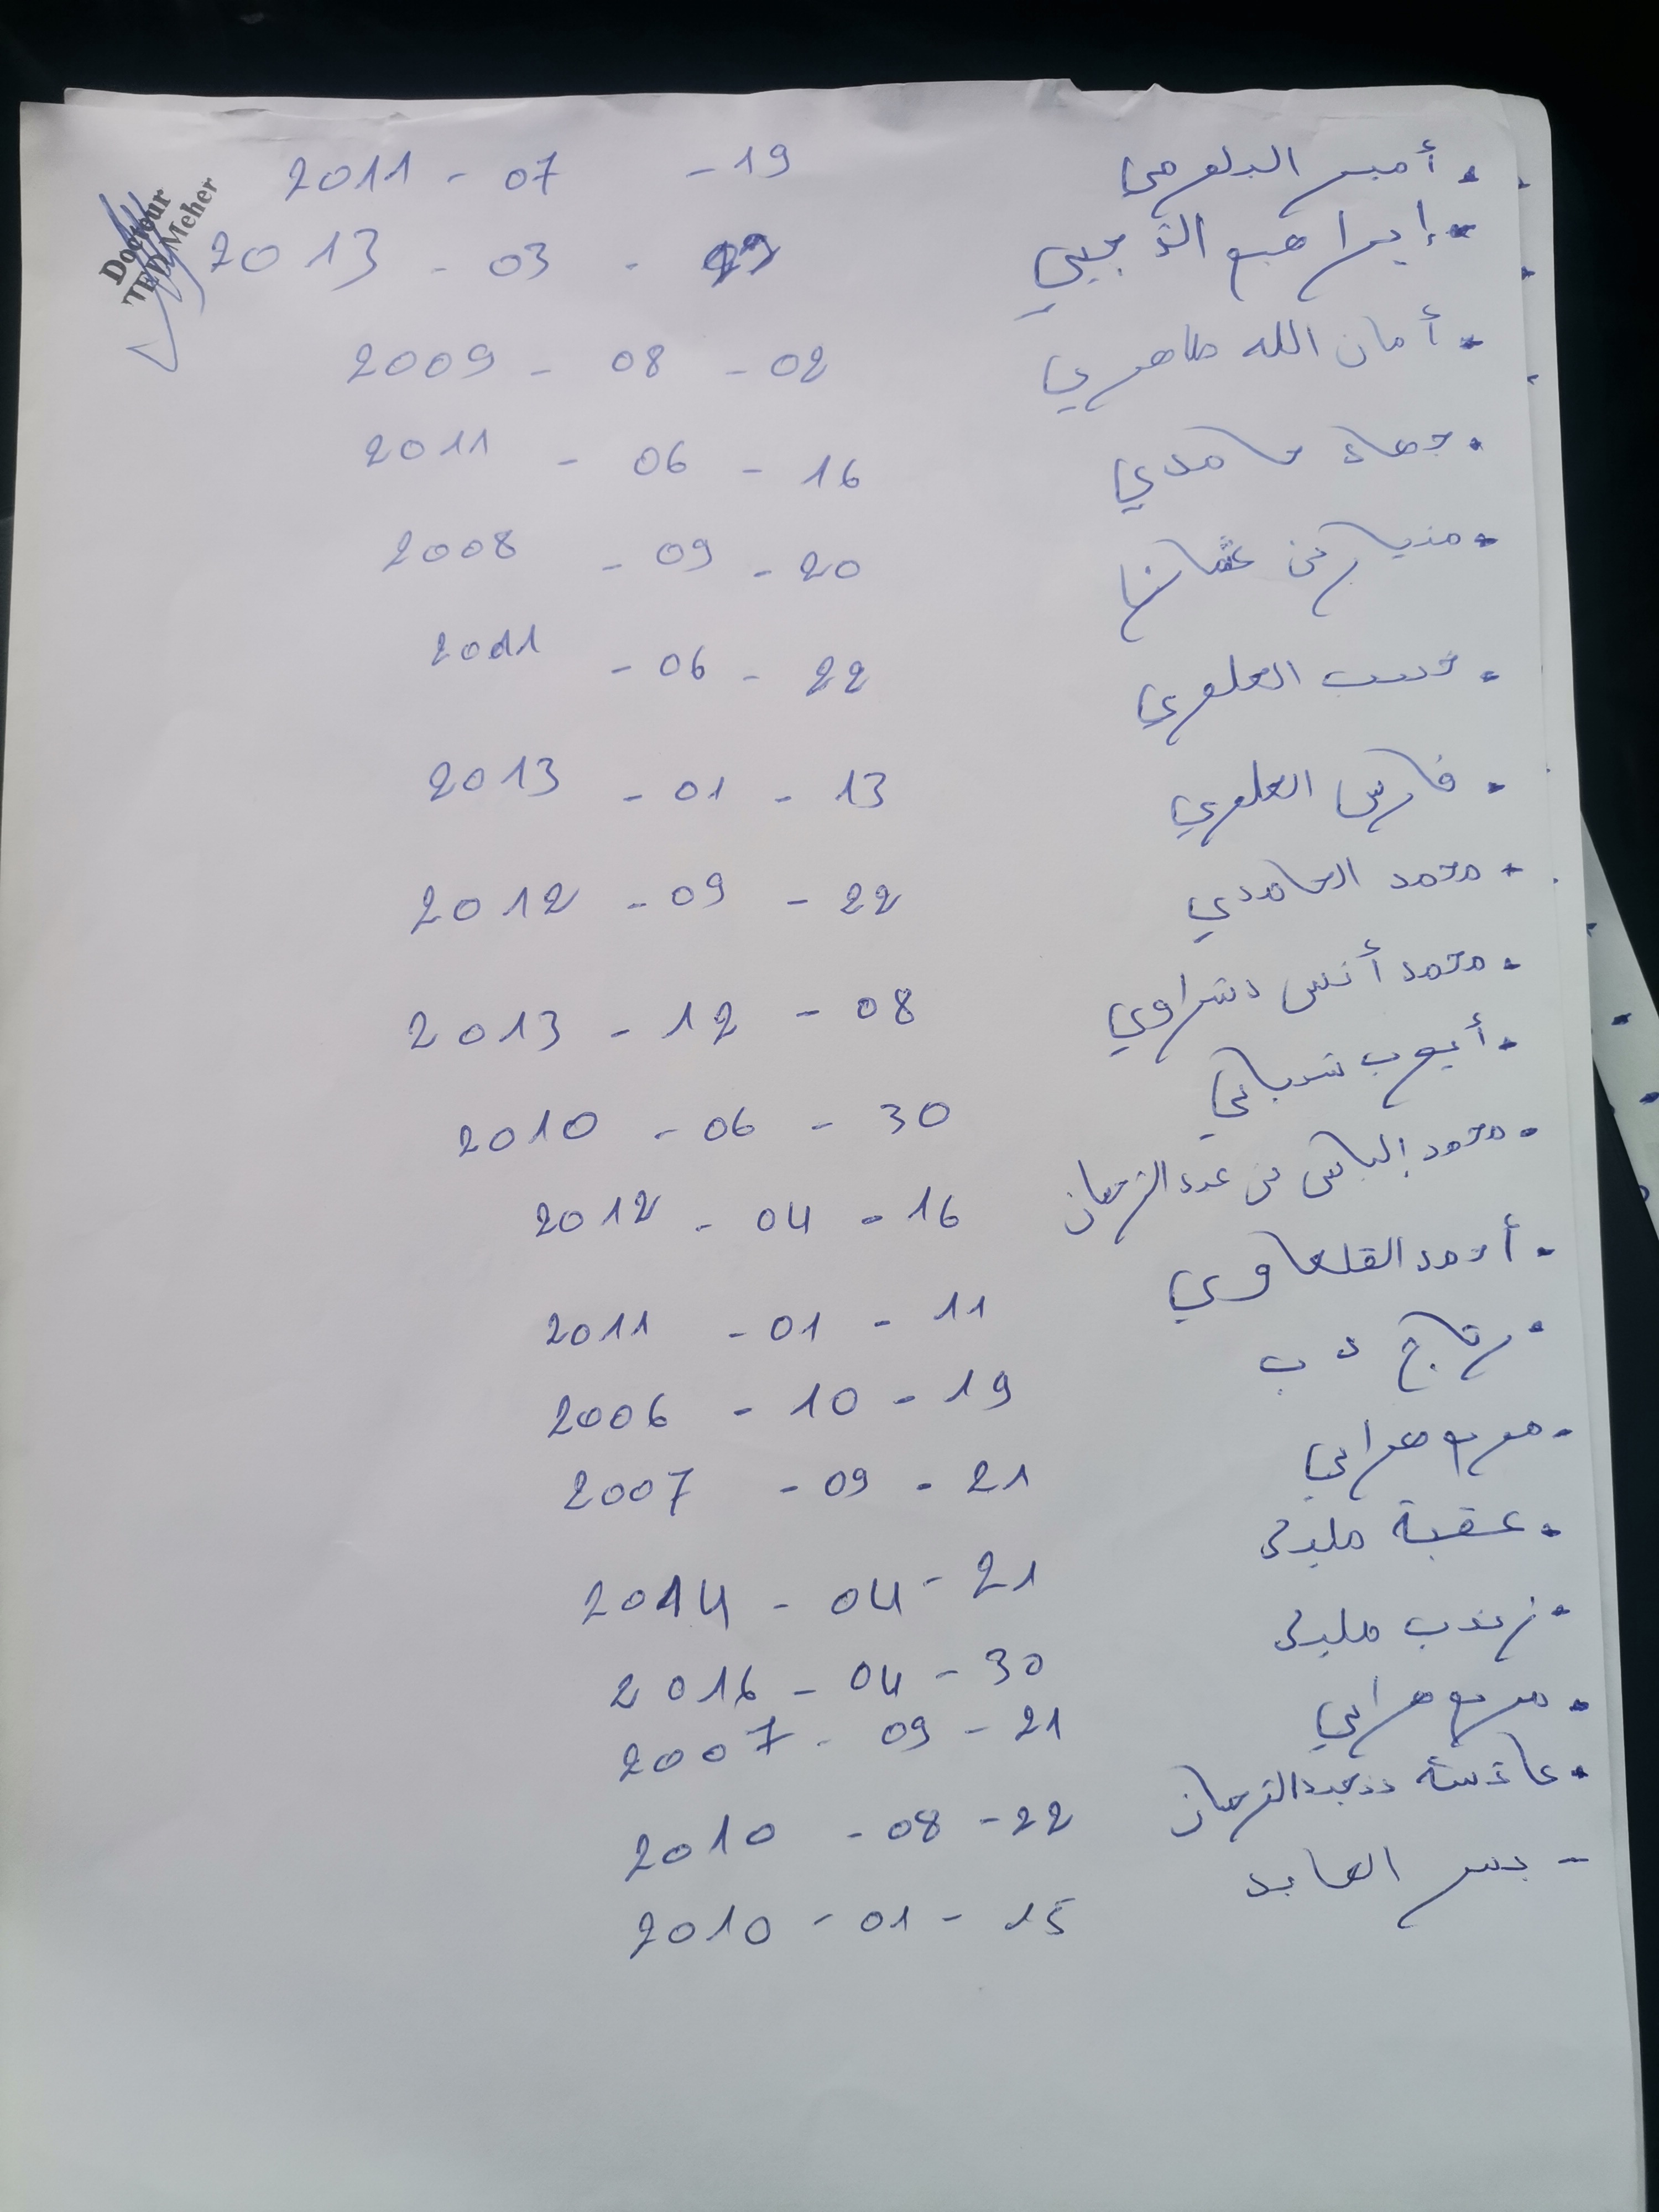 أمير الدلوهي 19 - 07 - 2011
إبراهيم الذهبي - 03 - 2013
أمان الله طاهري 02 - 08 - 2009
جهاد حامدي 16 - 06 - 2011
منيار بن عثمان 20 - 09 - 2008
العلوي 22 - 06 - 2011
فارس العلوي 13 - 01 - 2013
محمد الحامدي 22 - 09 - 2012
محمد أنس دشراوي 08 - 12 - 2013
أيوب شيباني 30 - 06 - 2010
محمد إلياس بن عبد الرحمان 16 - 04 - 2012
أحمد القلعاوي 11 - 01 - 2011
19 - 10 - 2006
مريم هرابي 21 - 09 - 2007
عقبة مليكي 21 - 04 - 2014
زينب مليكي 30 - 04 - 2016
مريم هرابي 21 - 09 - 2007
عائشة بن عبد الرحمان 22 - 08 - 2010
- يسر العابد 15 - 01 - 2010
Docteur
Meher